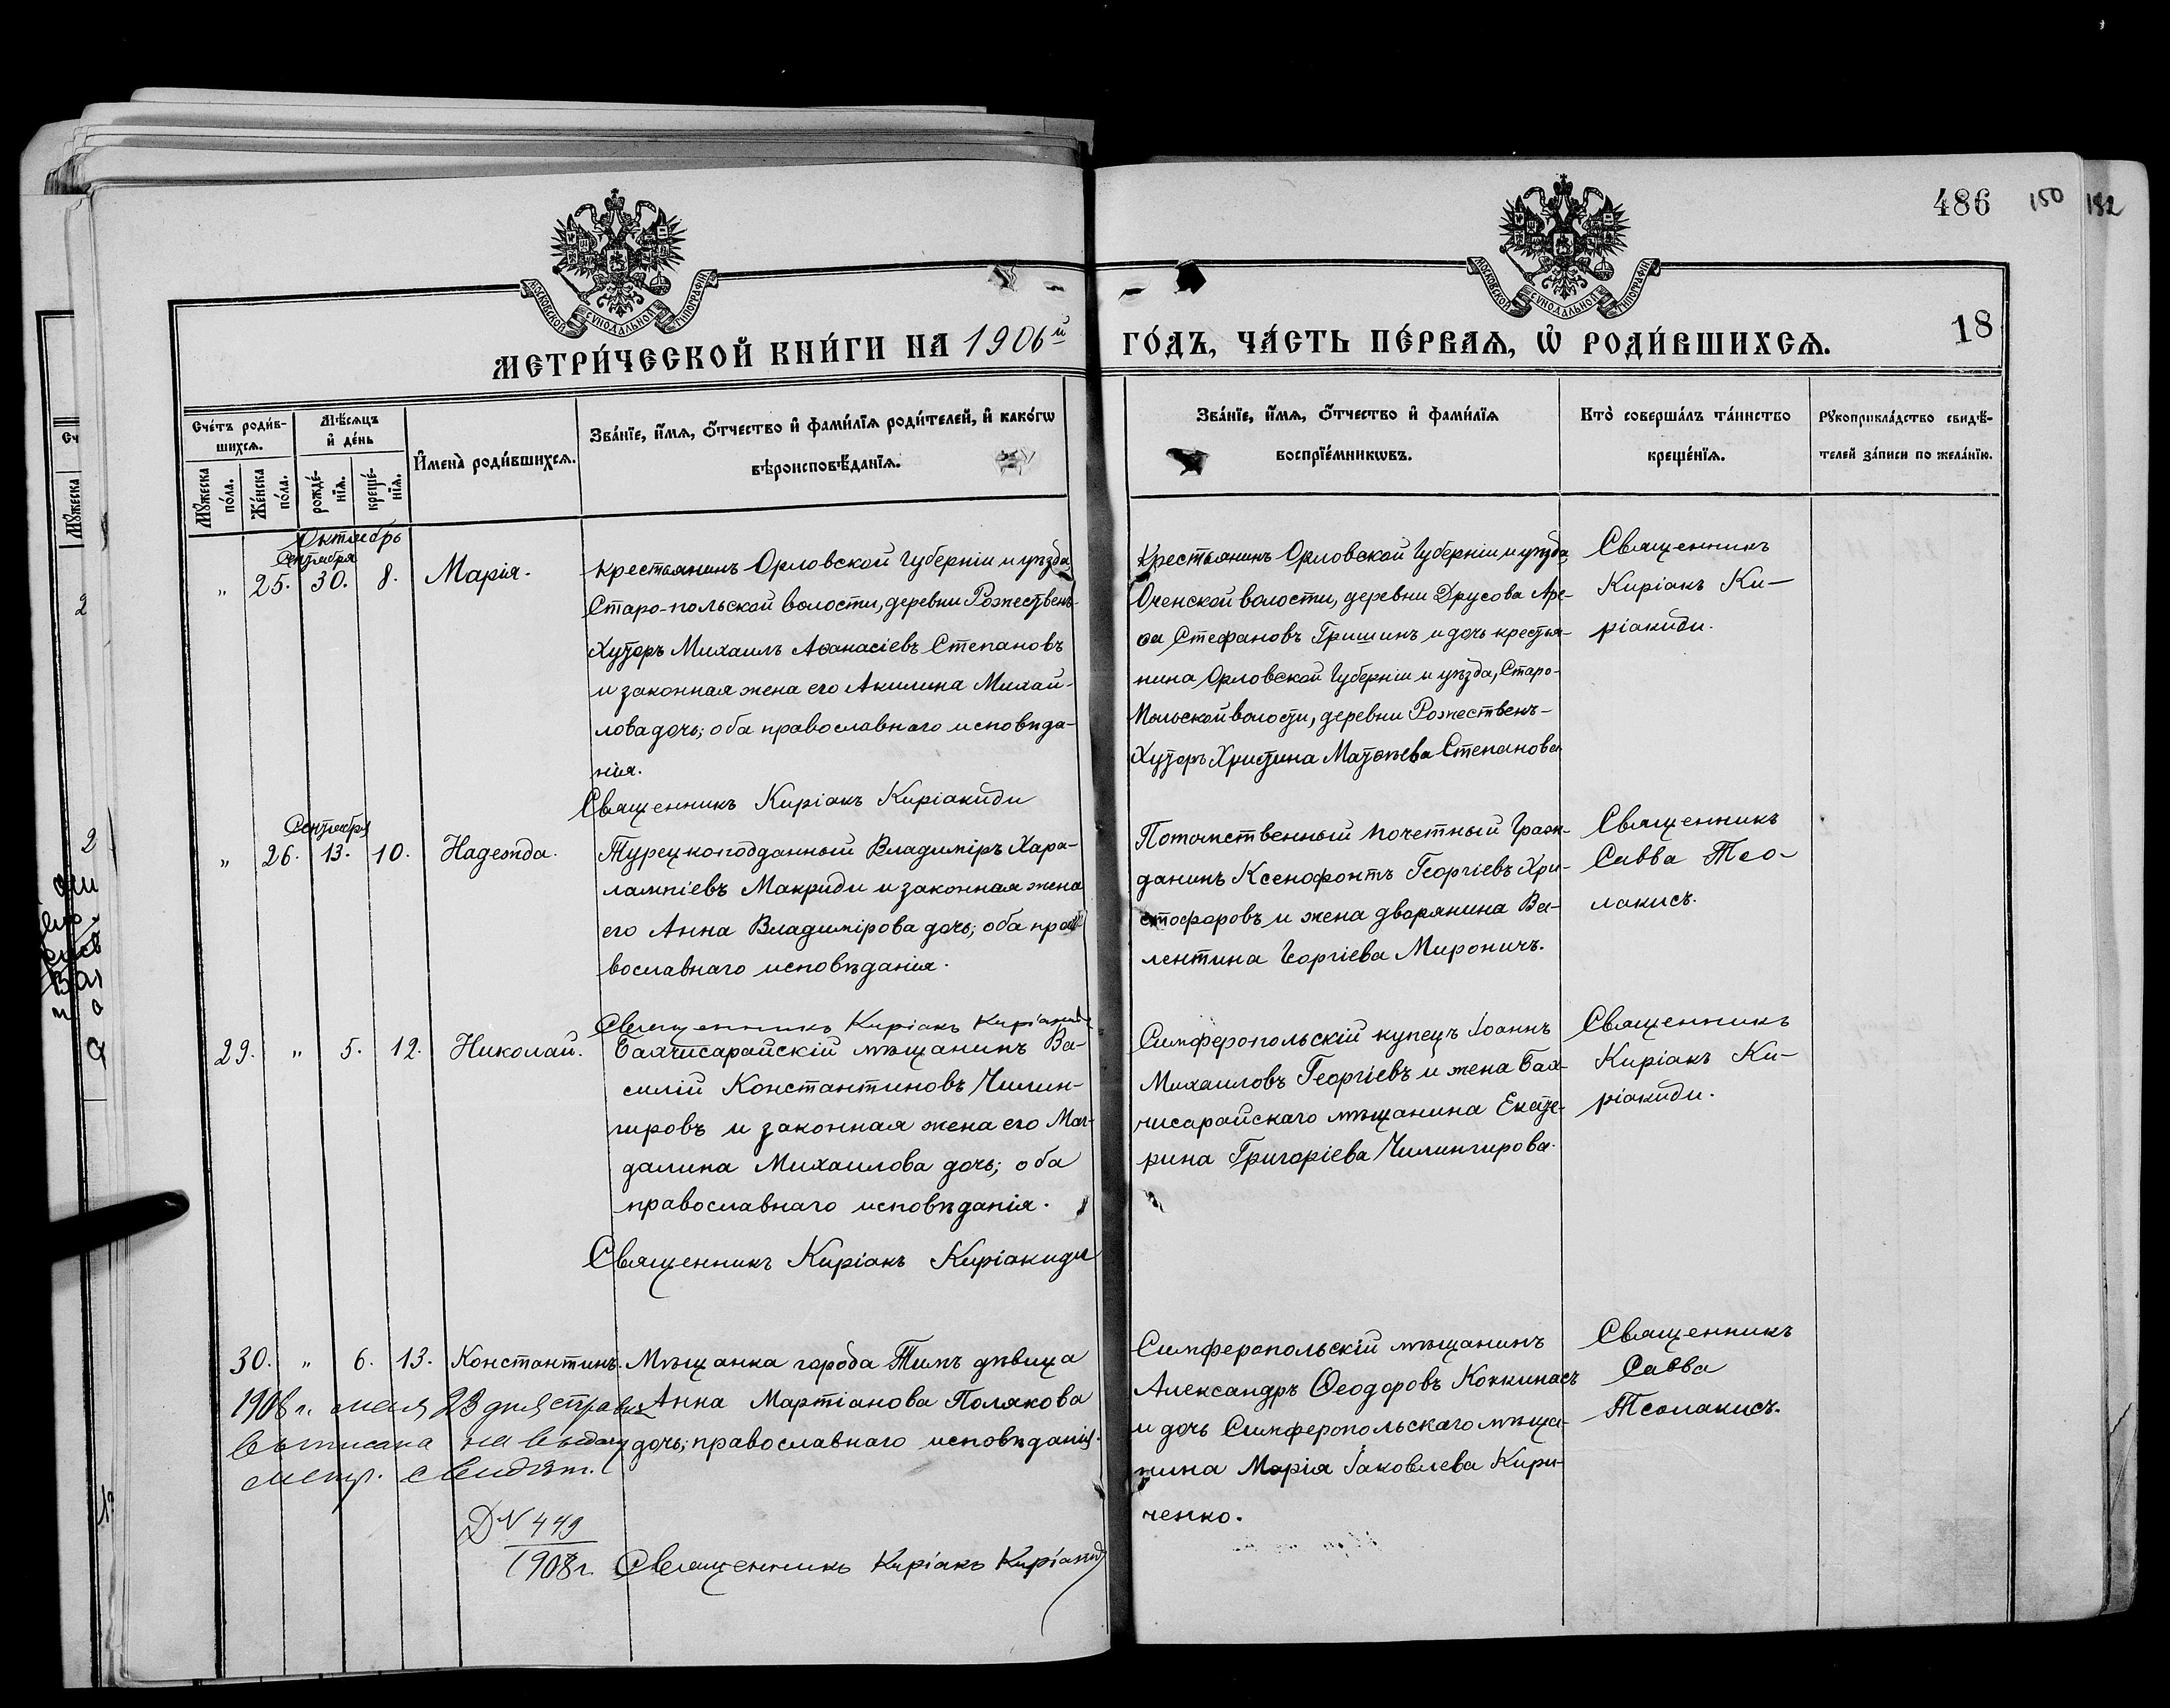 486 150 182
МОСКОВСКОЙ СУНОДАЛЬНОЙ ТИПОГРАФІИ
МОСКОВСКОЙ СУНОДАЛЬНОЙ ТИПОГРАФІИ
МЕТРИ́ЧЕСКОЙ КНИ́ГИ НА 1906й
ГО́ДЪ, ЧА́СТЬ ПЕ́РВАѦ, Ѡ҆ РОДИ́ВШИХСѦ.
18
Сче́тъ роди́в-
шихсѧ.
Мꙋ́жеска по́ла.
Же́нска по́ла.
Мѣ́сѧцъ
и҆ де́нь
рожде́-
нїѧ.
креще́-
нїѧ.
И҆мена̀ роди́вшихсѧ.
Зва́нїе, и҆́мѧ, ѻ҆́тчество и҆ фами́лїѧ роди́телей, и҆ како́гѡ
вѣроисповѣ́данїѧ.
Зва́нїе, и҆́мѧ, ѻ҆́тчество и҆ фами́лїѧ
воспрїе́мникѡвъ.
Кто̀ соверша́лъ та́инство
креще́нїѧ.
Рꙋкоприкла́дство свидѣ́-
телей за́писи по жела́нїю.
Октябрь
Сентября
" 25. 30. 8. Марія.
Крестьянинъ Орловской Губерніи и уѣзда
Старо-польской волости, деревни Рожественъ-
Хуторъ Михаилъ Аѳанасіевъ Степановъ
и законная жена его Акилина Михай-
лова дочь; оба православнаго исповѣда-
нія.
Священникъ Киріакъ Киріакиди
Крестьянинъ Орловской Губерніи и уѣзда,
волости, деревни Друсова Аре-
ѳа Стефановъ Гришинъ и дочь крестья-
нина Орловской Губерніи и уѣзда, Старо-
польской волости, деревни Рожественъ-
Хуторъ Христина Матѳѣева Степанова
Священникъ
Киріакъ Ки-
ріакиди.
Сентября
" 26. 13. 10. Надежда.
Турецкоподданный Владиміръ Хара-
лампіевъ Макриди и законная жена
его Анна Владимірова дочь; оба пра-
вославнаго исповѣданія.
Священникъ Киріакъ Киріакиди
Потомственный почетный Граж-
данинъ Ксенофонтъ Георгіевъ Хри-
стофоровъ и жена дворянина Ва-
лентина Георгіева Мироничъ.
Священникъ
Савва Тсо-
лакисъ.
29. " 5. 12. Николай.
Бахчисарайскій мѣщанинъ Ва-
силій Константиновъ Чилин-
гировъ и законная жена его Маг-
далина Михаилова дочь; оба
православнаго исповѣданія.
Священникъ Киріакъ Киріакиди
Симферопольскій купецъ Іоаннъ
Михаиловъ Георгіевъ и жена Бах-
чисарайскаго мѣщанина Екате-
рина Григоріева Чилингирова.
Священникъ
Киріакъ Ки-
ріакиди.
30. " 6. 13. Константинъ.
Мѣщанка города Тимъ дѣвица
Анна Мартіанова Полякова
дочь; православнаго исповѣданія.
Священникъ Киріакъ Киріакиди
1908 г. мая 23 дня справка
выписана на выдачу
метр. свидѣт.
Д N 449
1908 г.
Симферопольскій мѣщанинъ
Александръ Ѳеодоровъ Коккинасъ
и дочь Симферопольскаго мѣща-
нина Марія Іаковлева Кири-
ченко.
Священникъ
Савва
Тсолакисъ.